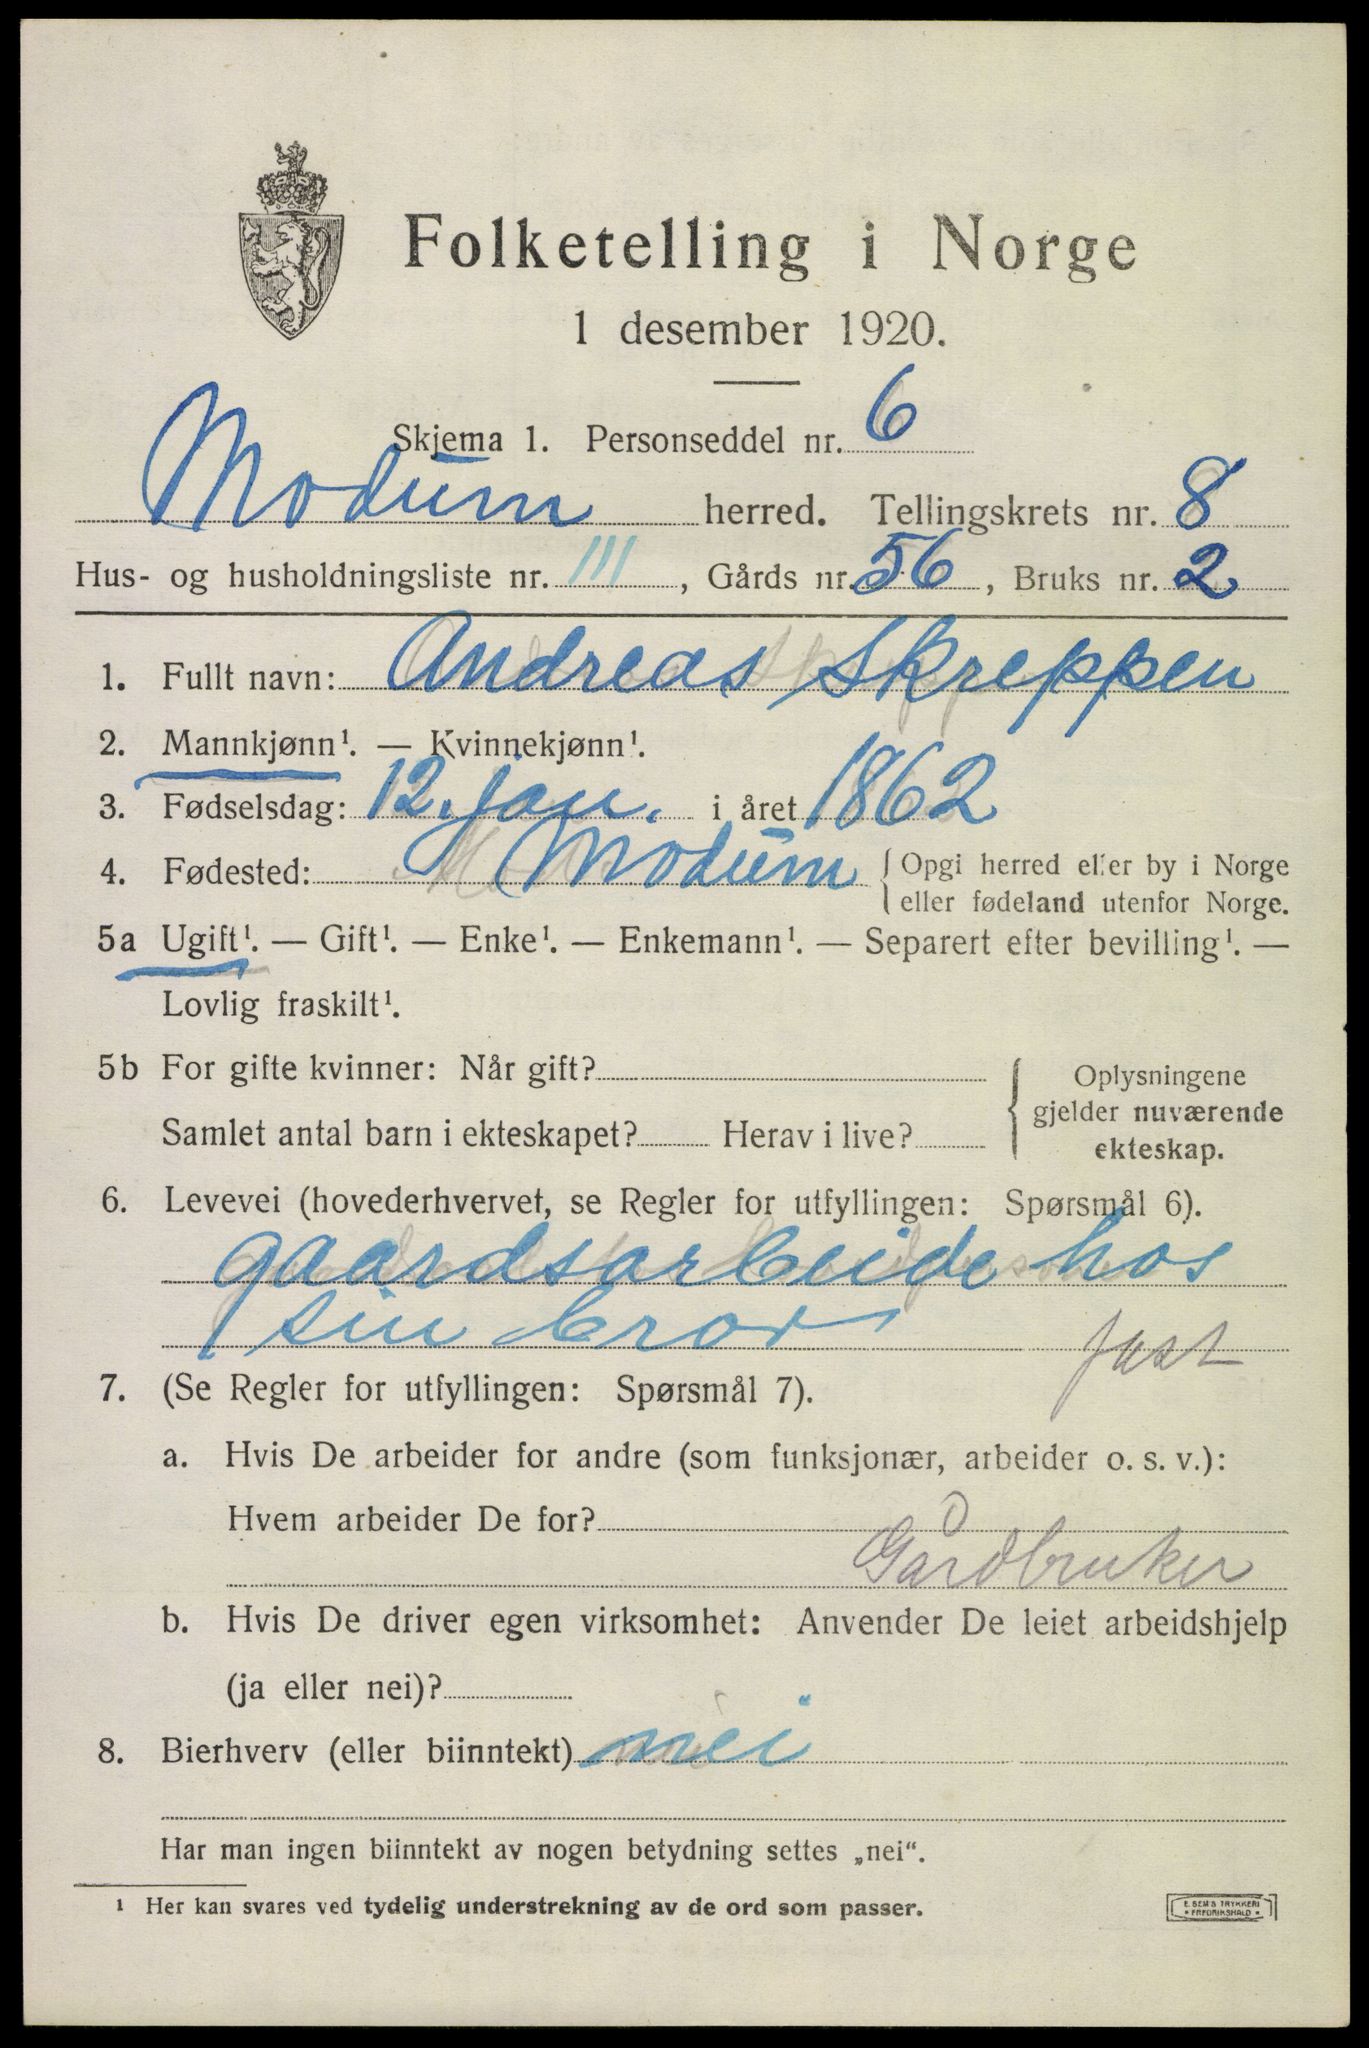 Folketelling i Norge
1 desember 1920.
Skjema 1. Personseddel nr. 6
Modum herred. Tellingskrets nr. 8
Hus- og husholdningsliste nr. III, Gårds nr. 56, Bruks nr. 2
1. Fullt navn: Andreas Skreppen
2. Mannkjønn¹. — Kvinnekjønn¹.
3. Fødselsdag: 12. jan. i året 1862
4. Fødested: Modum { Opgi herred eller by i Norge
eller fødeland utenfor Norge.
5a Ugift¹. — Gift¹. — Enke¹. — Enkemann¹. — Separert efter bevilling¹. —
Lovlig fraskilt¹.
5b For gifte kvinner: Når gift? Oplysningene
gjelder nuværende
Samlet antal barn i ekteskapet? Herav i live?
ekteskap.
6. Levevei (hovederhvervet, se Regler for utfyllingen: Spørsmål 6).
gaardsarbeide hos
sin bror fast
7. (Se Regler for utfyllingen: Spørsmål 7).
a. Hvis De arbeider for andre (som funksjonær, arbeider o. s. v.):
Hvem arbeider De for?
Gårdbruker
b. Hvis De driver egen virksomhet: Anvender De leiet arbeidshjelp
(ja eller nei)?
8. Bierhverv (eller biinntekt) nei
Har man ingen biinntekt av nogen betydning settes „nei“.
¹ Her kan svares ved tydelig understrekning av de ord som passer.
E. SEM'S TRYKKERI
* FREDRIKSHALD *